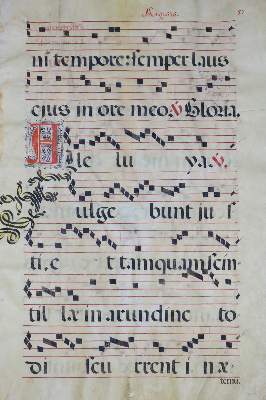 ni tempore: semper laus
ejus in ore meo. V Gloria.
Ale lu ya. V
ulge bunt ju s
ti, e t tamquam scin
til læ in arundine to
di scu rrent i n æ